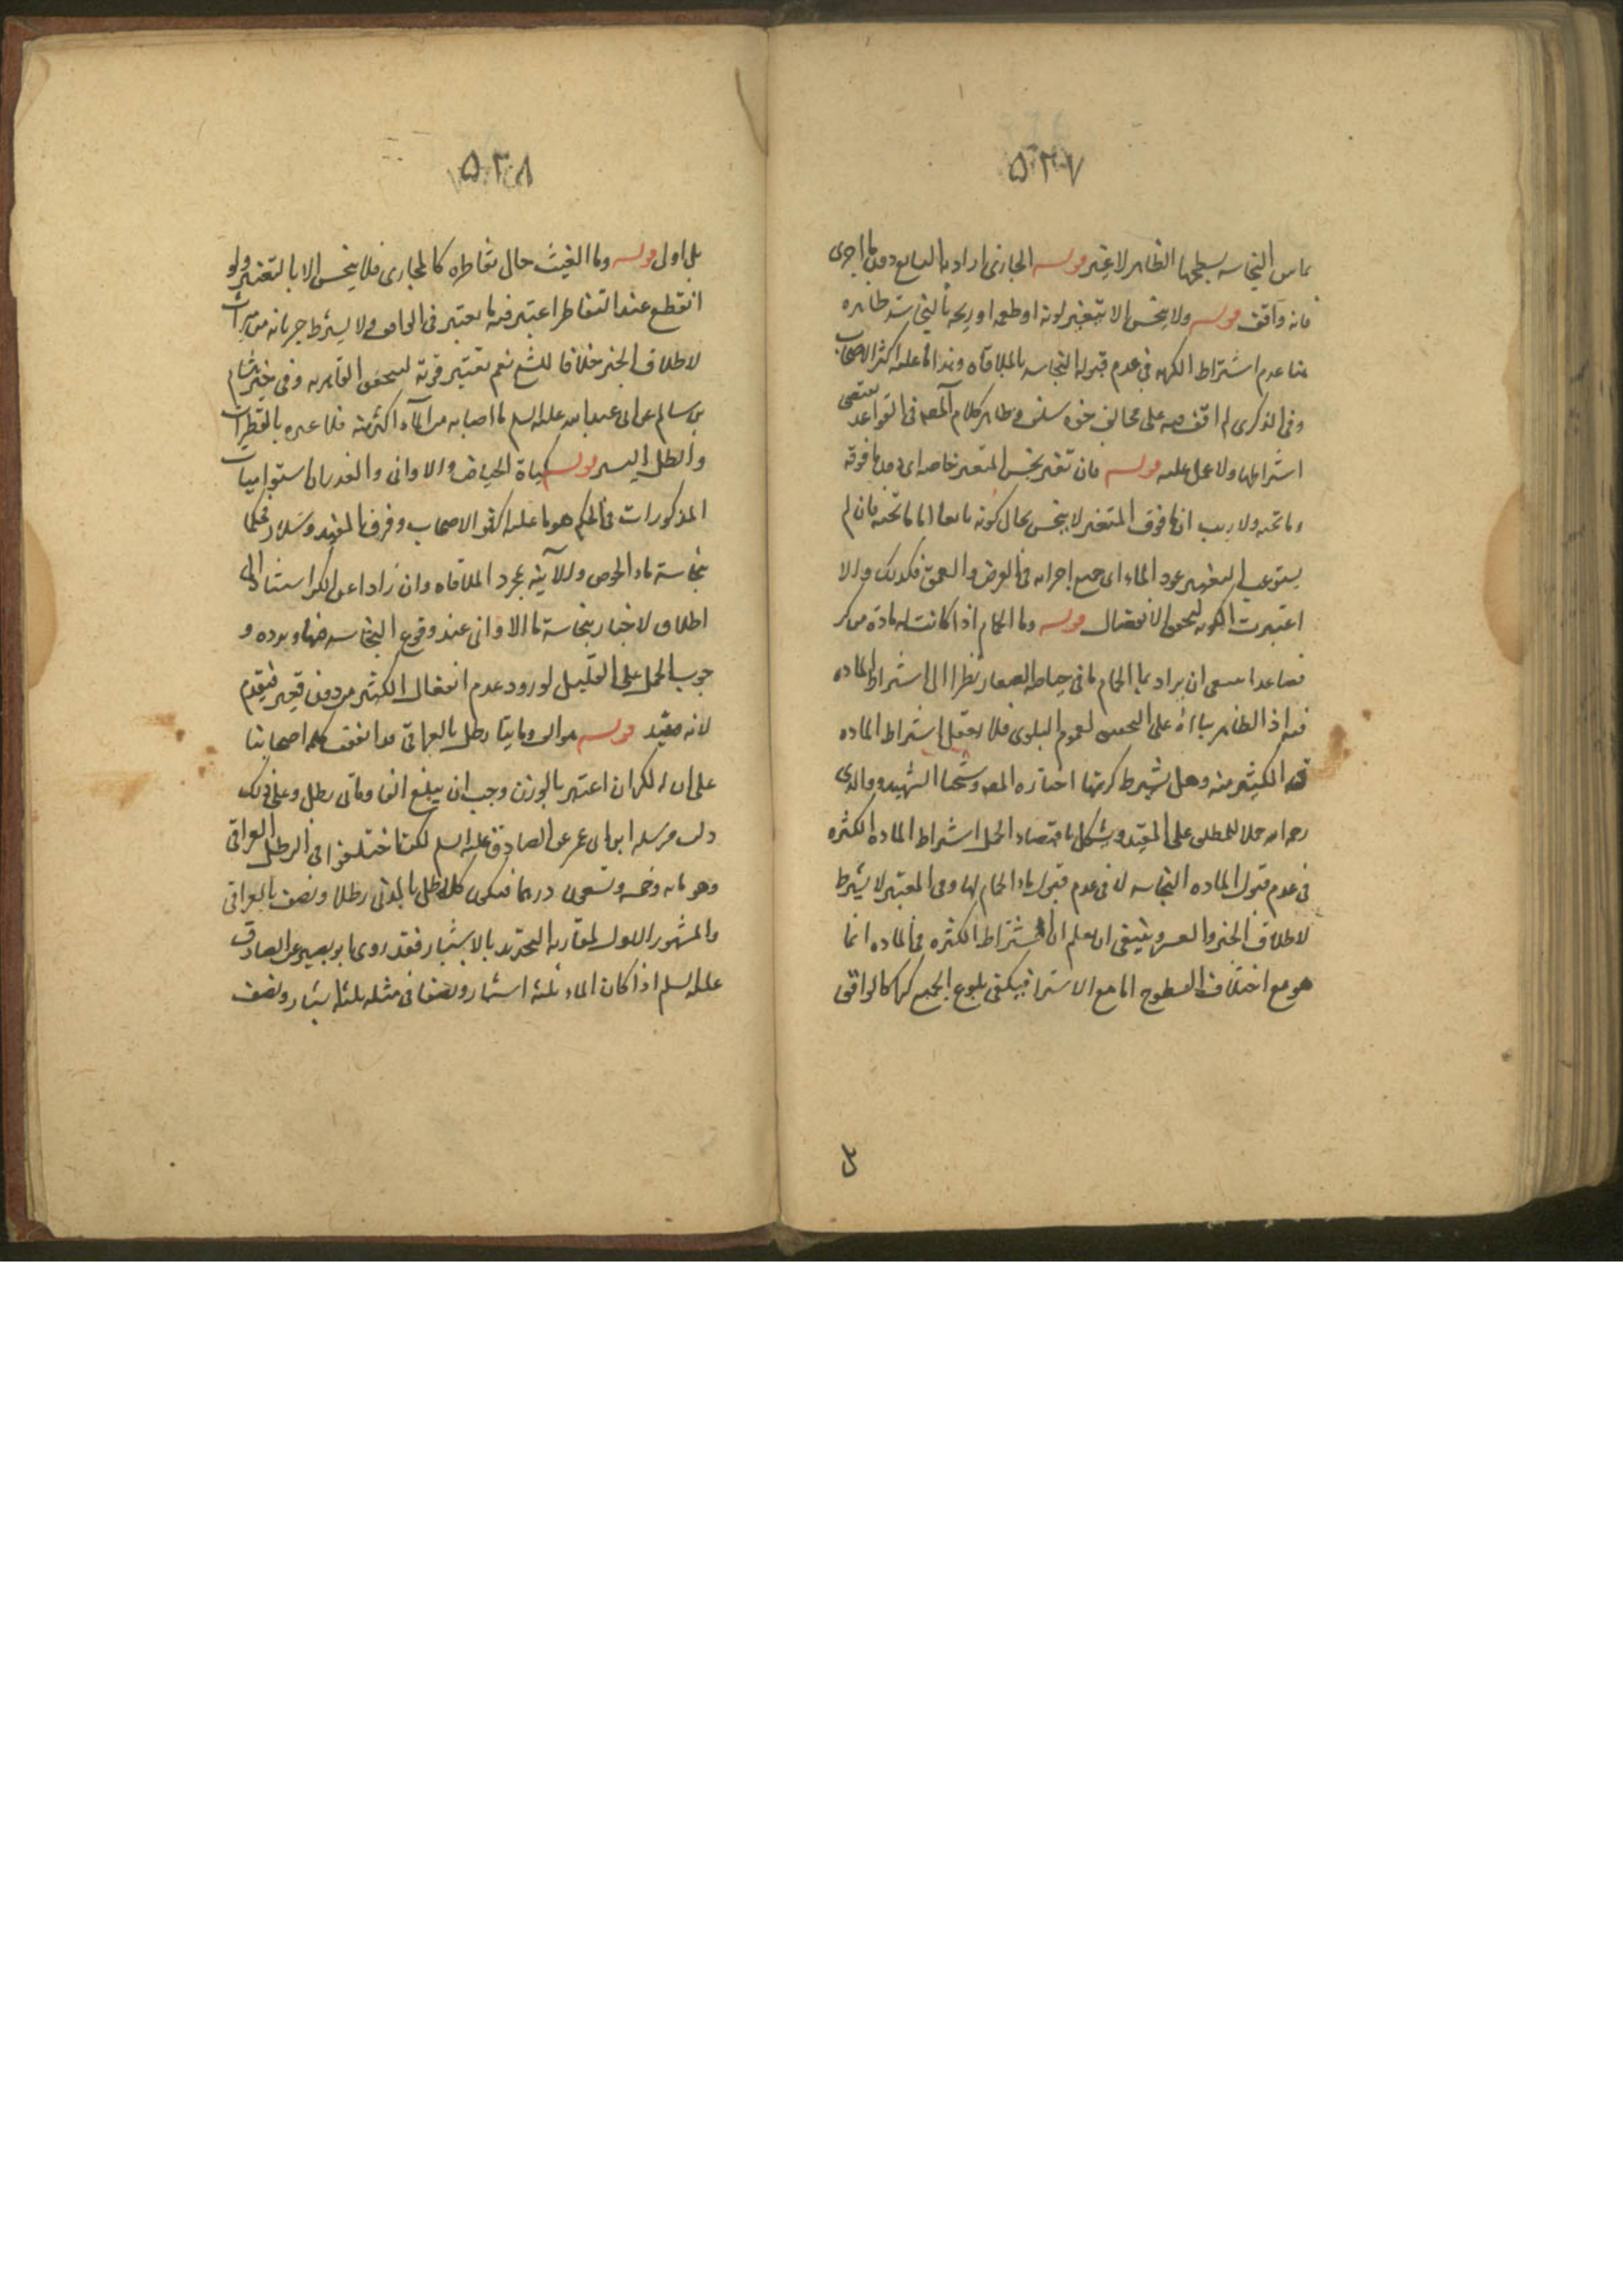 ٥٣٧
ماس النجاسه بسطحها الظاهر لا غير قوله الجاري اراد به النابع دون ما اجرى
فانه واقف قوله ولا ينجس الا بتغير لونه او طعمه او ريحه بالنجاسه ظاهره
هنا عدم اشتراط الكريه في عدم قبوله النجاسه بالملاقاه وهذا ما عليه اكثر الاصحاب
وفي الذكرى لم اقف فيه على مخالف ممن سلف وظاهر كلام المصـ في القواعد يقتضى
اشتراطها ولا عمل عليه قوله فان تغير نجس المتغير خاصه اى دون ما فوقه
وما تحته ولا ريب ان ما فوق المتغير لا ينجس بحال كونه نابعا اما ما تحته فان لم
يستوعب التغيير عمود الماء اى جميع اجزائه في العرض والعمق فكذلك والا
اعتبرت الكريه لتحقق الانفصال قوله وماء الحمام اذا كانت له مادة من كر
فصاعدا ينبغى ان يراد بماء الحمام ما في حياضه الصغار نظرا الى اشتراط الماده
فيه اذ الظاهر بناؤه على التخفيف لعموم البلوى فلا يعقل اشتراط الماده
في الكثير منه وهل يشترط كريتها اختاره المصـ وشيخنا الشهيد ووالدى
رحمه الله حملا للمطلق على المقيد ويشكل باقتضاء الحمل اشتراط الماده الكثره
في عدم قبول الماده النجاسه لا في عدم قبول ماء الحمام لها وفي المعتبر لا يشترط
لاطلاق الخبر والعسر وينبغي ان يعلم ان اشتراط الكثره في الماده انما
هو مع اختلاف السطوح اما مع الاستواء فيكفي بلوغ الجميع كرا كالواقف
بل اولى
٥٣٨
بل اولى قوله وماء الغيث حال تقاطره كالجارى فلا ينجس الا بالتغير ولو
انقطع عند التقاطر اعتبر فيه ما يعتبر في الواقف ولا يشترط جريانه من ميزاب
لاطلاق الخبر خلافا للشيخ نعم يعتبر قوته ليتحقق القاهريه وفي خبر هشام
بن سالم عن ابى عبد الله عليه السلم ما اصابه من الماء اكثر منه فلا عبره بالقطرات
والطل اليسير قوله مياه الحياض والاواني والغدران استواء مياه
المذكورات في الحكم هو ما عليه اكثر الاصحاب وفرق المفيد وسلار فحكما
بنجاسة ماء الحوض والآنيه بمجرد الملاقاه وان زادا عن الكر استنادا الى
اطلاق الاخبار بنجاسة ماء الاواني عند وقوع النجاسه فيها ويرده و
جوب الحمل على القليل لورود عدم انفعال الكثير من دون تغير فيقدم
لانه مقيد قوله هو الف ومايتا رطل بالعراقي قد اتفقت كلمه اصحابنا
على ان الكر ان اعتبر بالوزن وجب ان يبلغ الفا ومائتي رطل وعلى ذلك
دلت مرسله ابن ابى عمير عن الصادق عليه السلم لكنا اختلفوا في الرطل العراقي
وهو مائه وخمسه وتسعون درهما فيكون كل رطل بالمدني رطلا ونصف بالعراقي
والمشهور الاول لمقاربه التحديد بالاشبار فقد روى ابو بصير عن الصادق
عليه السلم اذا كان الماء ثلثه اشبار ونصفا في مثله ثلثه اشبار ونصف